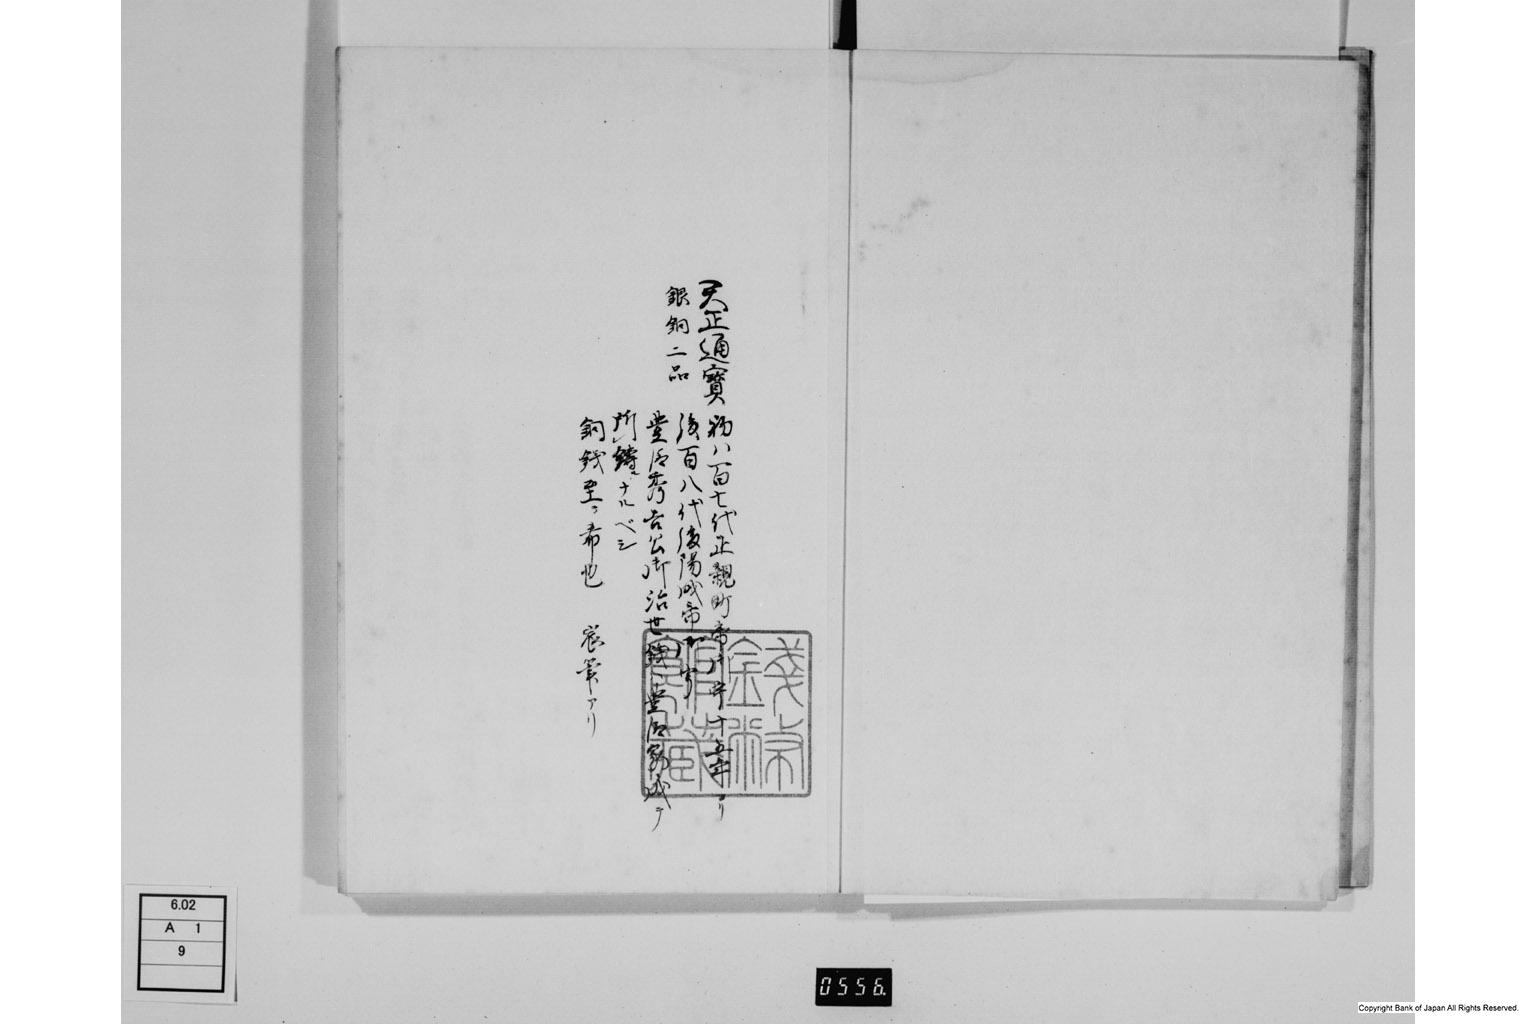 天正通寳
銀銅二品
初ハ百七代正親町帝 十五年ヨリ
後百八代後陽成帝
豊臣秀吉公御治世 豊臣家勅 テ
所鑄ナルベシ
銅銭至テ希也 宸筆アリ
銭幣館蔵
6.02
A 1
9
0556.
Copyright Bank of Japan All Rights Reserved.